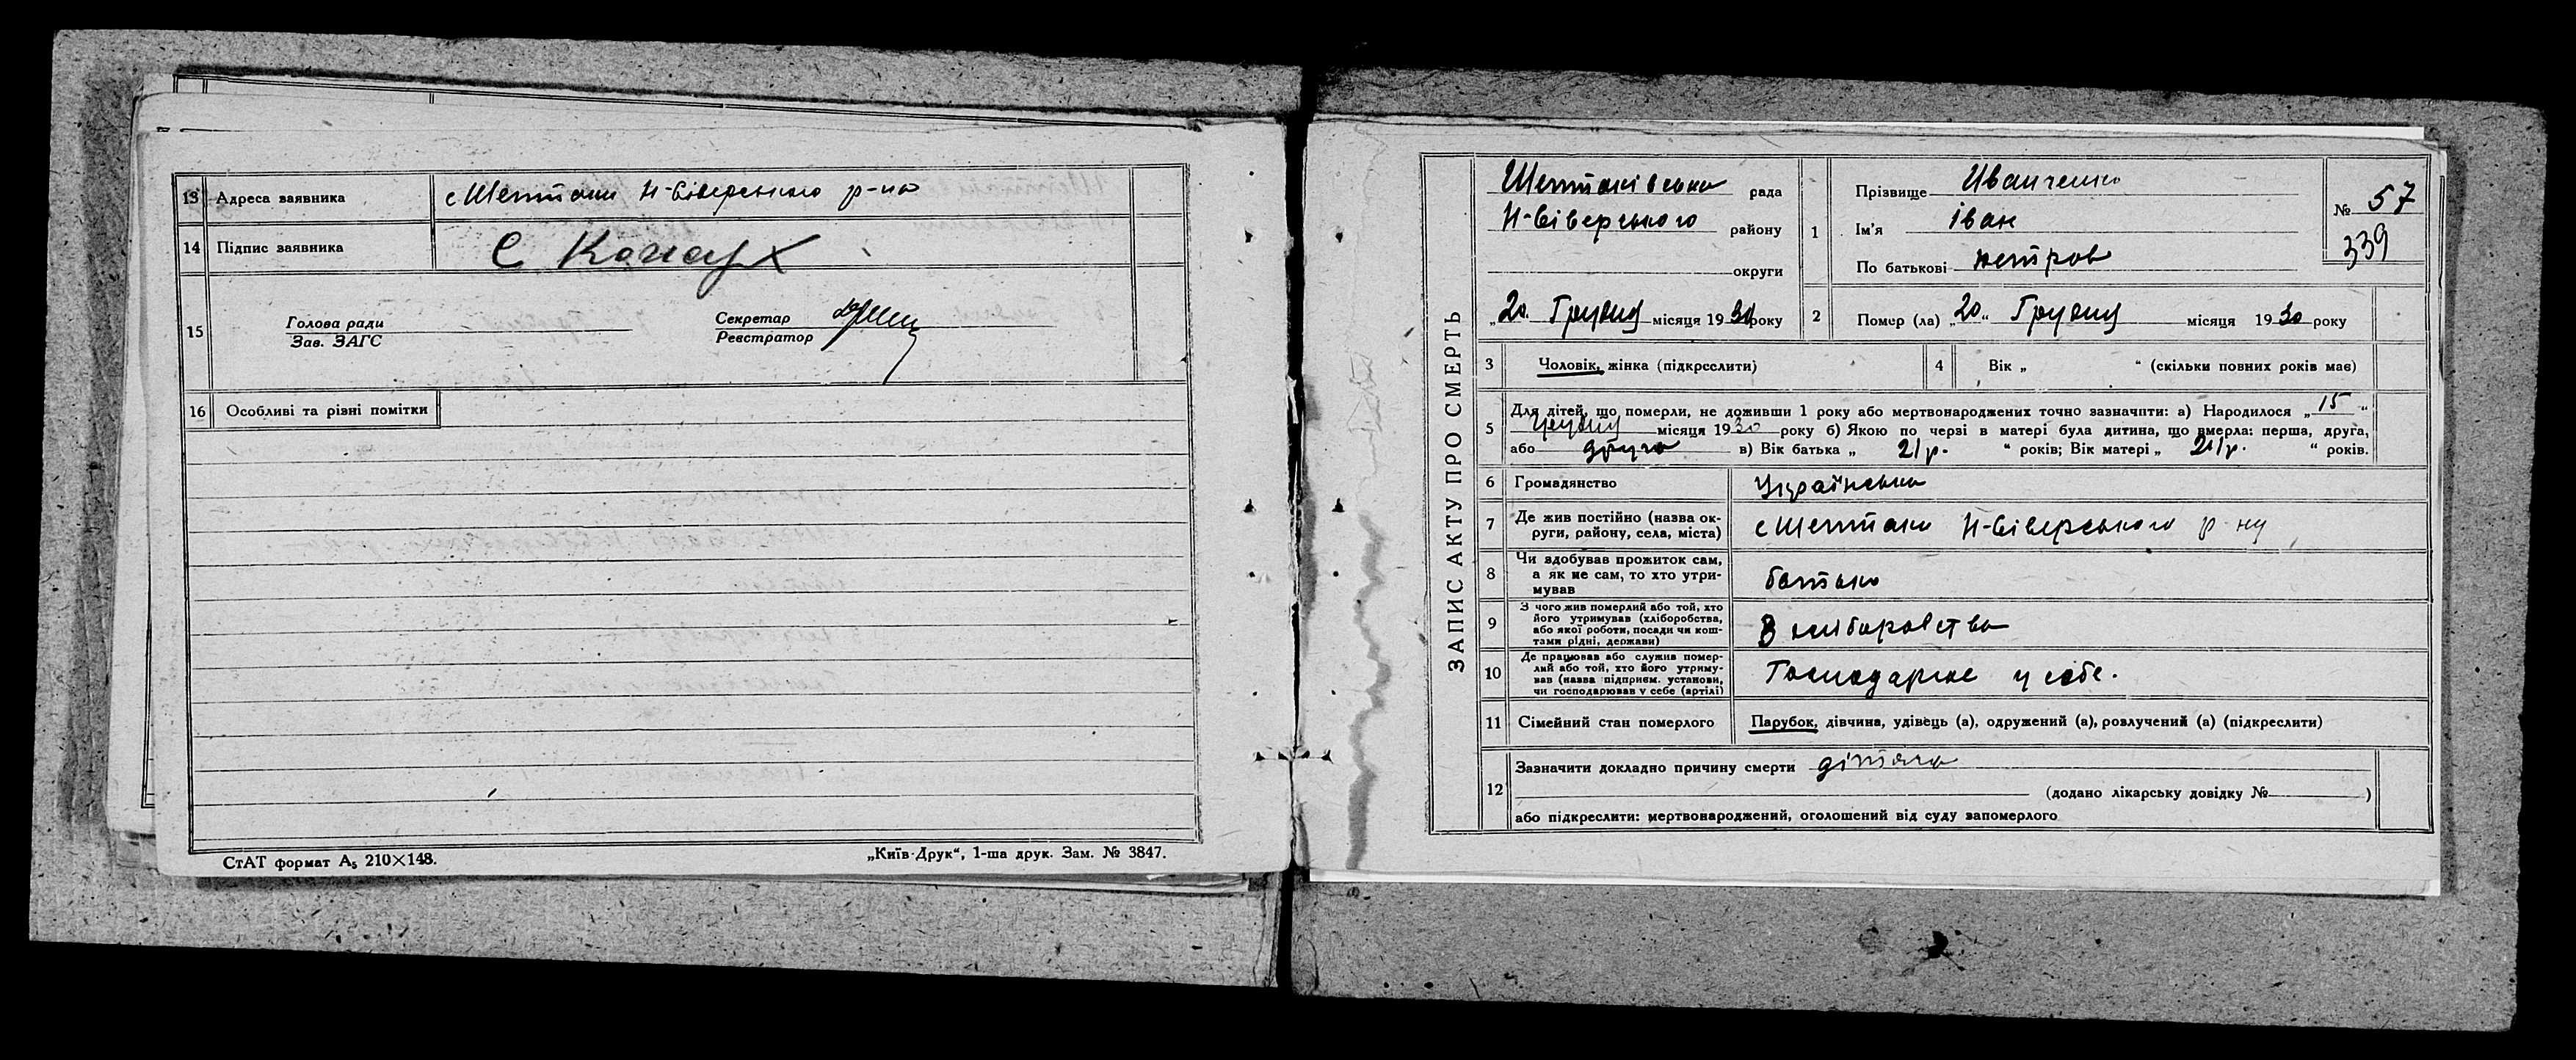 13 Адреса заявника с Шептаки Н-Сіверського р-на
14 Підпис заявника С Конах
15 Голова ради
Зав. ЗАГС
Секретар
Реєстратор
16 Особливі та різні помітки
СтАТ формат А₅ 210×148.
„Київ-Друк“, 1-ша друк. Зам. № 3847.
ЗАПИС АКТУ ПРО СМЕРТЬ
Шептаківська рада
Н-Сіверського району
округи
„20 Грудня місяця 1930 року
1 Прізвище Иванченко
Ім'я Іван
По батькові петров
№ 57
339
2 Помер (ла) „20“ Грудня місяця 1930 року
3 Чоловік, жінка (підкреслити)
4 Вік „ “ (скільки повних років має)
5 Для дітей, що померли, не доживши 1 року або мертвонароджених точно зазначити: а) Народилося „15“
Грудня місяця 1930 року б) Якою по черзі в матері була дитина, що вмерла: перша, друга,
або друга в) Вік батька „ 21р. “ років; Вік матері „ 21р. “ років.
6 Громадянство Українська
7 Де жив постійно (назва ок-
руги, району, села, міста) с Шептаки Н-Сіверського р-ну
8 Чи здобував прожиток сам,
а як не сам, то хто утри-
мував батько
9 З чого жив померлий або той, хто
його утримував (хліборобства,
або якої роботи, посади чи кош-
тами рідні, держави) З хліборобства
10 Де працював або служив помер-
лий або той, хто його утриму-
вав (назва підприєм. установи,
чи господарював у себе (артілі) Господарює у себе.
11 Сімейний стан померлого Парубок, дівчина, удівець (а), одружений (а), розлучений (а) (підкреслити)
12 Зазначити докладно причину смерти дітяча
(додано лікарську довідку № )
або підкреслити: мертвонароджений, оголошений від суду запомерлого